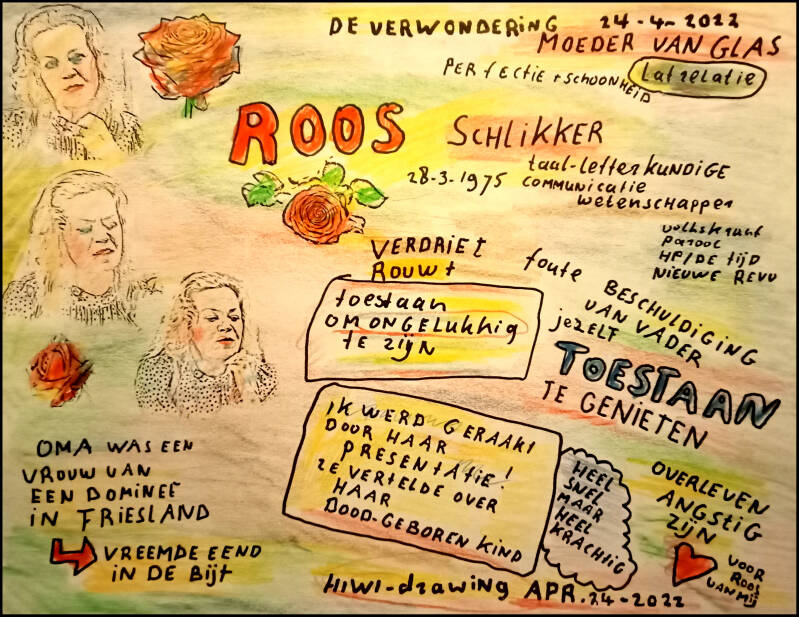 DE VERWONDERING 24-4-2022
MOEDER VAN GLAS
PERFECTIE + SCHOONHEID
Latrelatie
ROOS SCHLIKKER
28-3-1975
taal-letterkundige
communicatie
wetenschapper
volkskrant
Parool
HP/DE TIJD
NIEUWE REVU
VERDRIET
ROUWT
toestaan
OM ONGELUKKIG
TE ZIJN
foute BESCHULDIGING
VAN VADER
jezelf
TOESTAAN
TE GENIETEN
IK WERD GERAAKT
DOOR HAAR
PRESENTATIE!
ZE VERTELDE OVER
HAAR
DOOD-GEBOREN KIND
HEEL
SNEL
MAAR
HEEL
KRACHTIG
OVERLEVEN
ANGSTIG
ZIJN
VOOR
ROOS
VAN MIJ
OMA WAS EEN
VROUW VAN
EEN DOMINEE
IN FRIESLAND
VREEMDE EEND
IN DE BIJT
HIWI-drawing APR.24-2022